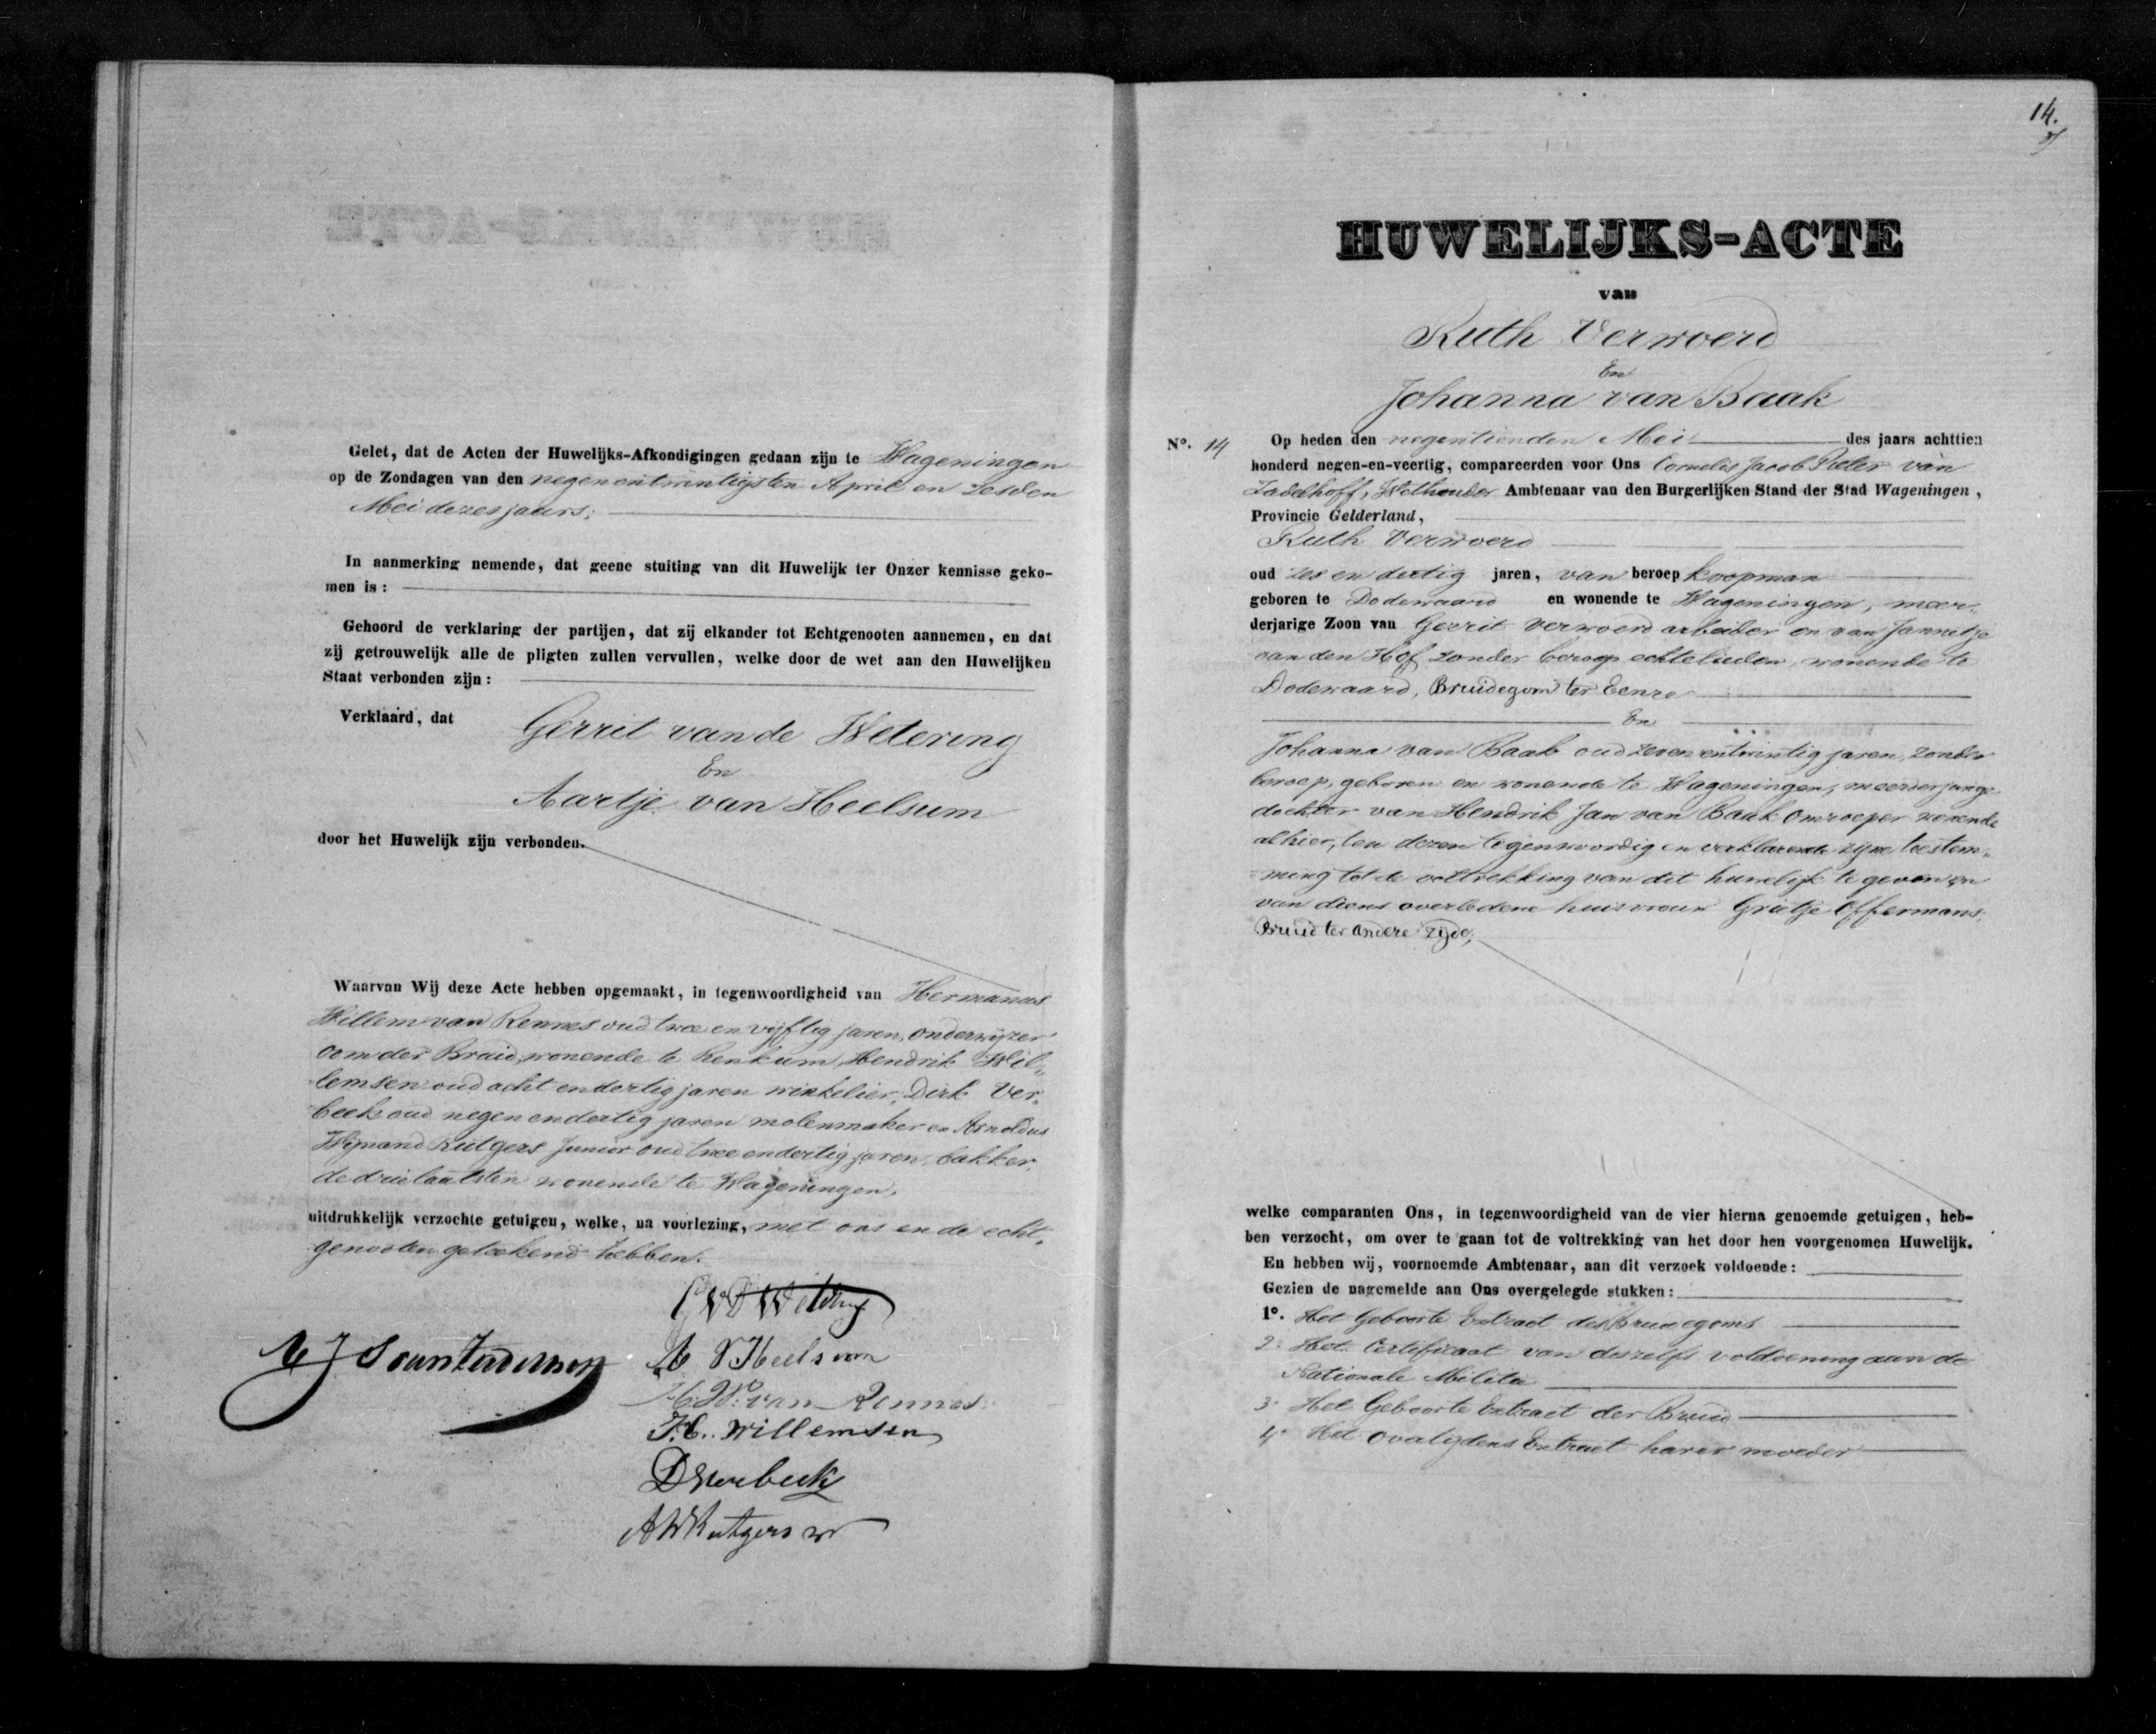 Gelet, dat de Acten der Huwelijks-Afkondigingen gedaan zijn te Wageningen
op de Zondagen van den negenentwintigsten April en zesden
Mei dezes jaars;
In aanmerking nemende, dat geene stuiting van dit Huwelijk ter Onzer kennisse geko-
men is:
Gehoord de verklaring der partijen, dat zij elkander tot Echtgenooten aannemen, en dat
zij getrouwelijk alle de pligten zullen vervullen, welke door de wet aan den Huwelijken
Staat verbonden zijn:
Verklaard, dat Gerrit van de Wetering
En
Aartje van Heelsum
door het Huwelijk zijn verbonden.
Waarvan Wij deze Acte hebben opgemaakt, in tegenwoordigheid van Hermanus
Willem van Rennes oud twee en vijftig jaren, onderwijzer
oom der Bruid, wonende te Renkum, Hendrik Wil„
lemsen oud acht en dertig jaren winkelier, Dirk Ver„
beek oud negen en dertig jaren molenmaker en Arnoldus
Wijnand Rutgers Junior oud twee en dertig jaren, bakker,
de drie laatsten wonende te Wageningen,
uitdrukkelijk verzochte getuigen, welke, na voorlezing, met ons en de echt„
genooten geteekend hebben.
GVD Wetering
A V Heelsum
H. W. van Rennes
H. Willemsen
D Verbeek
A W Rutgers jr
14.
HUWELIJKS-ACTE
van
Ruth Verwoerd
En
Johanna van Baak
No. 14 Op heden den negentienden Mei des jaars achttien
honderd negen-en-veertig, compareerden voor Ons Cornelis Jacob Pieter van
Zadelhoff, Wethouder Ambtenaar van den Burgerlijken Stand der Stad Wageningen,
Provincie Gelderland,
Ruth Verwoerd
oud zes en dertig jaren, van beroep koopman
geboren te Dodewaard en wonende te Wageningen, meer„
derjarige Zoon van Gerrit Verwoerd arbeider en van Jannetje
van den Hof zonder beroep echtelieden, wonende te
Dodewaard, Bruidegom ter Eenre
En
Johanna van Baak oud zeven entwintig jaren, zonder
beroep, geboren en wonende te Wageningen, meerderjarige
dochter van Hendrik Jan van Baak omroeper wonende
alhier, ten dezen tegenwoordig en verklarende zijne toestem„
ming tot de voltrekking van dit huwelijk te geven en
van diens overledene huisvrouw Grietje Offermans,
Bruid ter andere zijde,
welke comparanten Ons, in tegenwoordigheid van de vier hierna genoemde getuigen, heb-
ben verzocht, om over te gaan tot de voltrekking van het door hen voorgenomen Huwelijk.
En hebben wij, voornoemde Ambtenaar, aan dit verzoek voldoende:
Gezien de nagemelde aan Ons overgelegde stukken:
1o. Het Geboorte Extract des Bruidegoms
2o Het Certificaat van deszelfs voldoening aan de
Nationale Militie
3o Het Geboorte Extract der Bruid
4o Het overlijdens Extract harer moeder